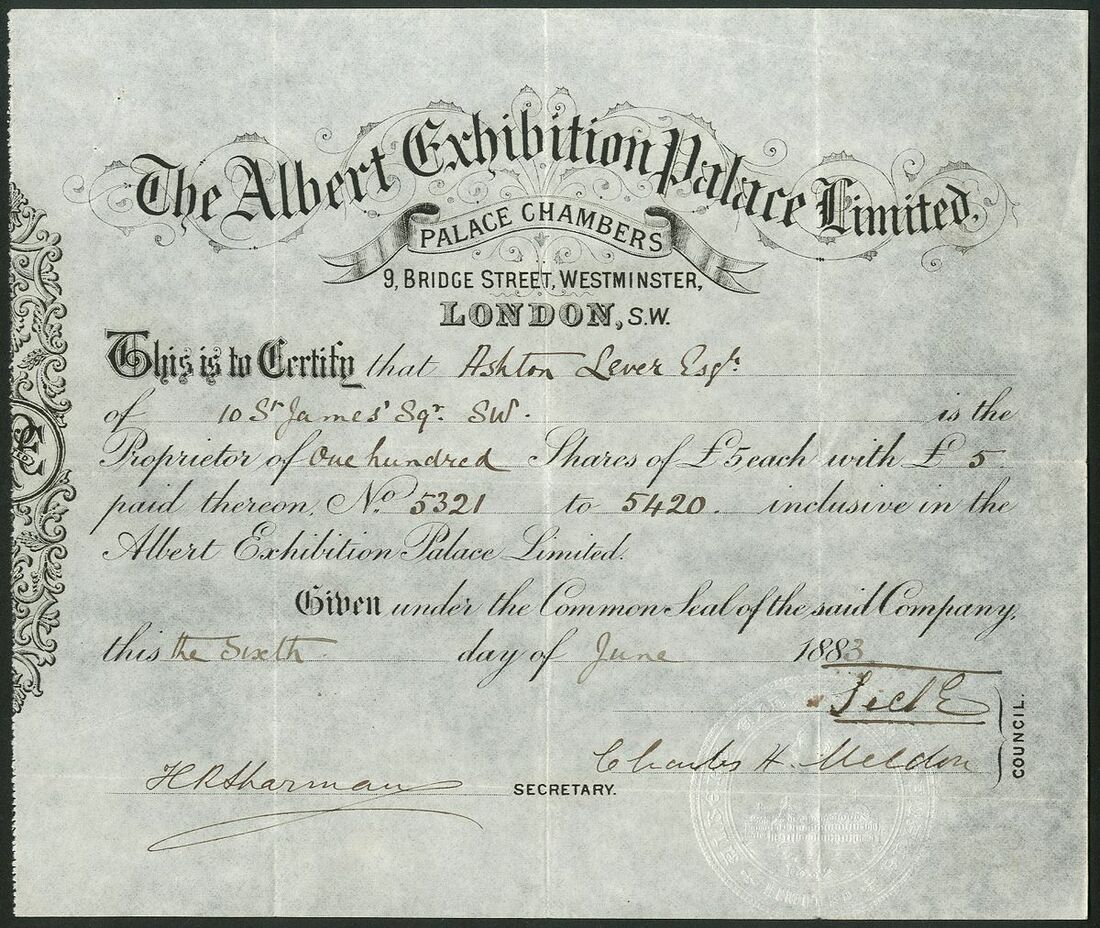 The Albert Exhibition Palace Limited,
PALACE CHAMBERS
9, BRIDGE STREET, WESTMINSTER,
LONDON, S.W.
This is to Certify that Ashton Lever Esqr.
of 10 St. James' Sqr. SW. is the
Proprietor of One hundred Shares of £5 each with £ 5
paid thereon. No. 5321 to 5420. inclusive in the
Albert Exhibition Palace Limited.
Given under the Common Seal of the said Company,
this the Sixth day of June 1883
Charles H. Meldon
COUNCIL.
H R Sharman SECRETARY.